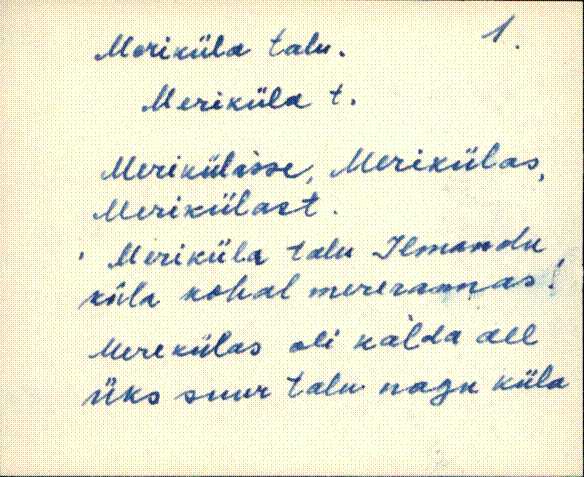 1.
Meriküla talu.
Meriküla t.
Merikülàsse, Merikülas,
Merikülast.
' Meriküla talu Ilmandu
küla kohal mererannas!
Merekülas oli kàlda all
üks suur talu nagu küla